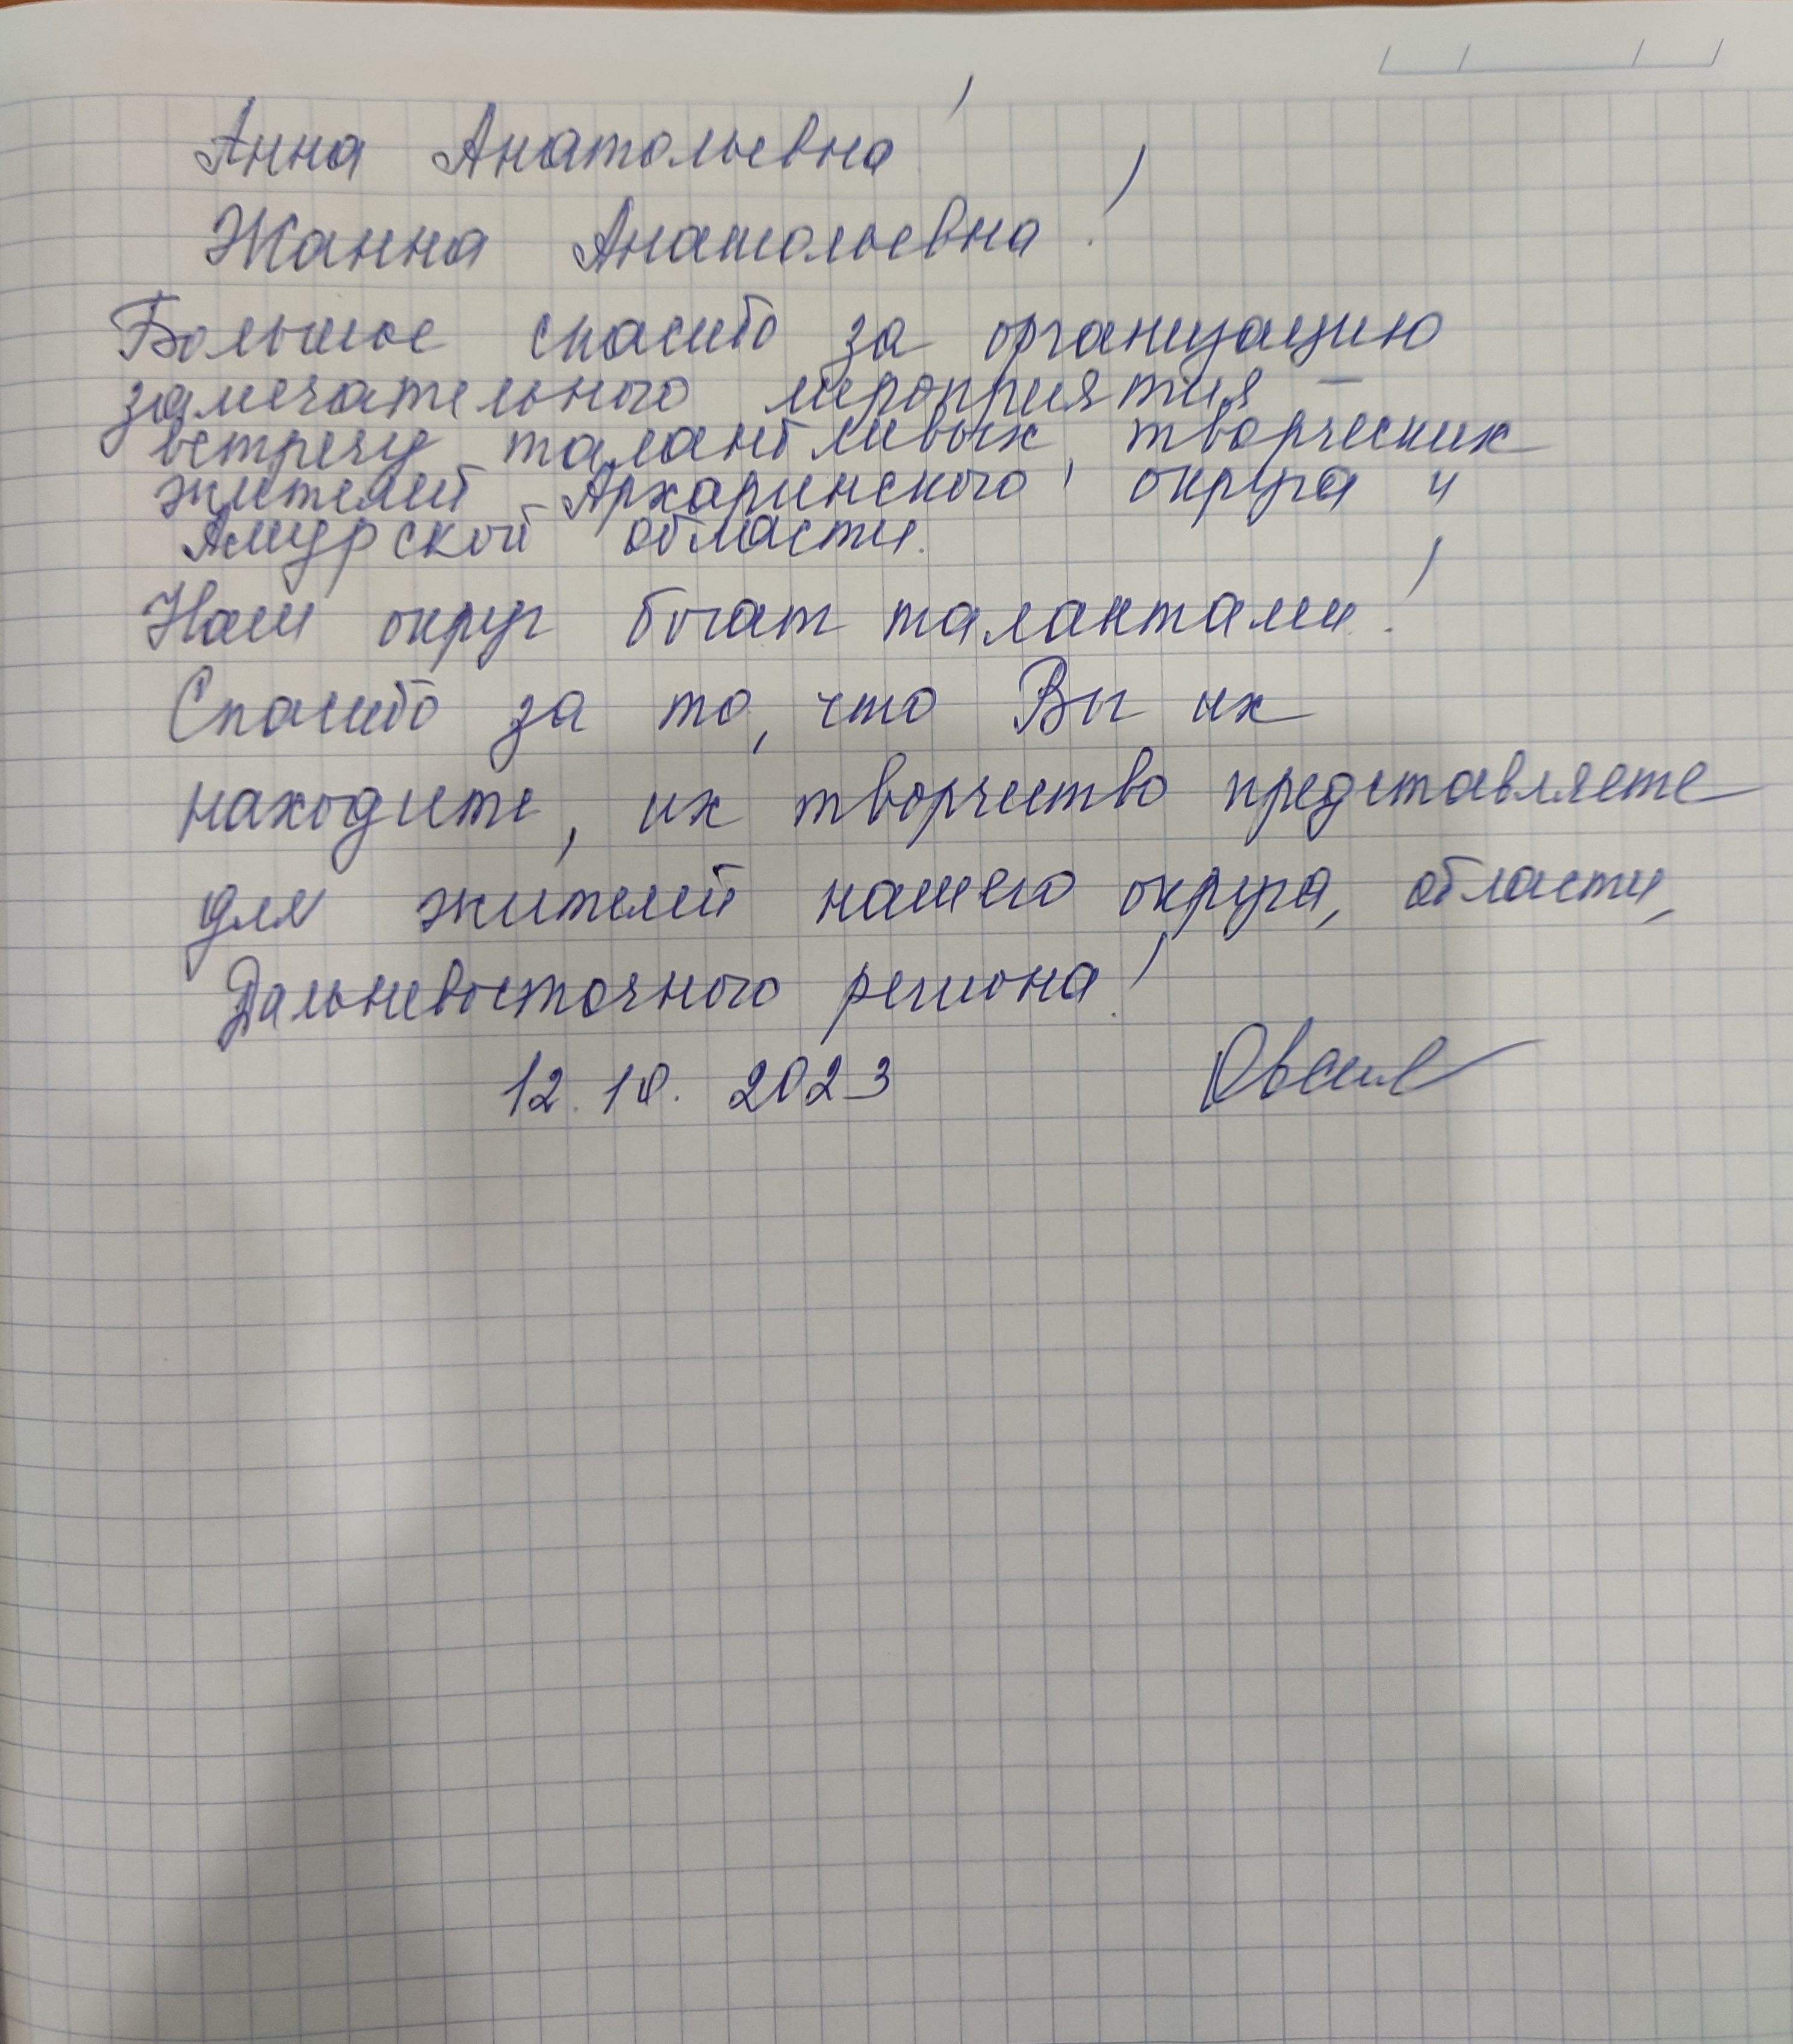 Анна Анатольевна!
Жанна Анатольевна!
Большое спасибо за организацию
замечательного мероприятия –
встречу талантливых, творческих
жителей Архаринского округа и
Амурской области.
Наш округ богат талантами!
Спасибо за то, что Вы их
находите, их творчество представляете
для жителей нашего округа, области,
Дальневосточного региона!
12.10.2023